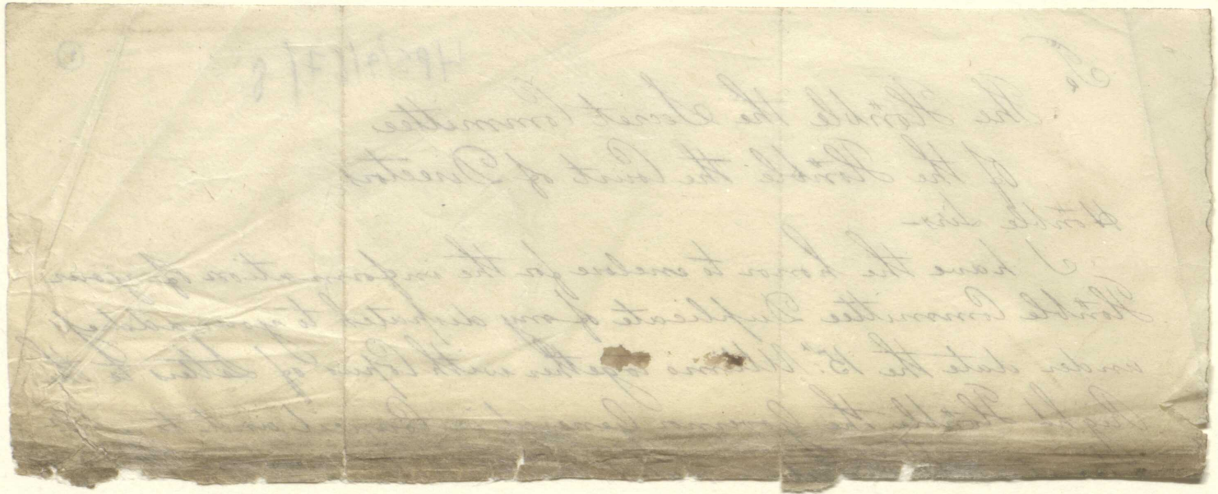 To
The Honble the Secret Committee
Of the Honble the Court of Directors
Honble Sirs
I have the honor to enclose for the information of your
Honble Committee Duplicate of my dispatch to your address
under date the 15th Ultimo together with Copies of Letters to the
Right Honble the Governor General